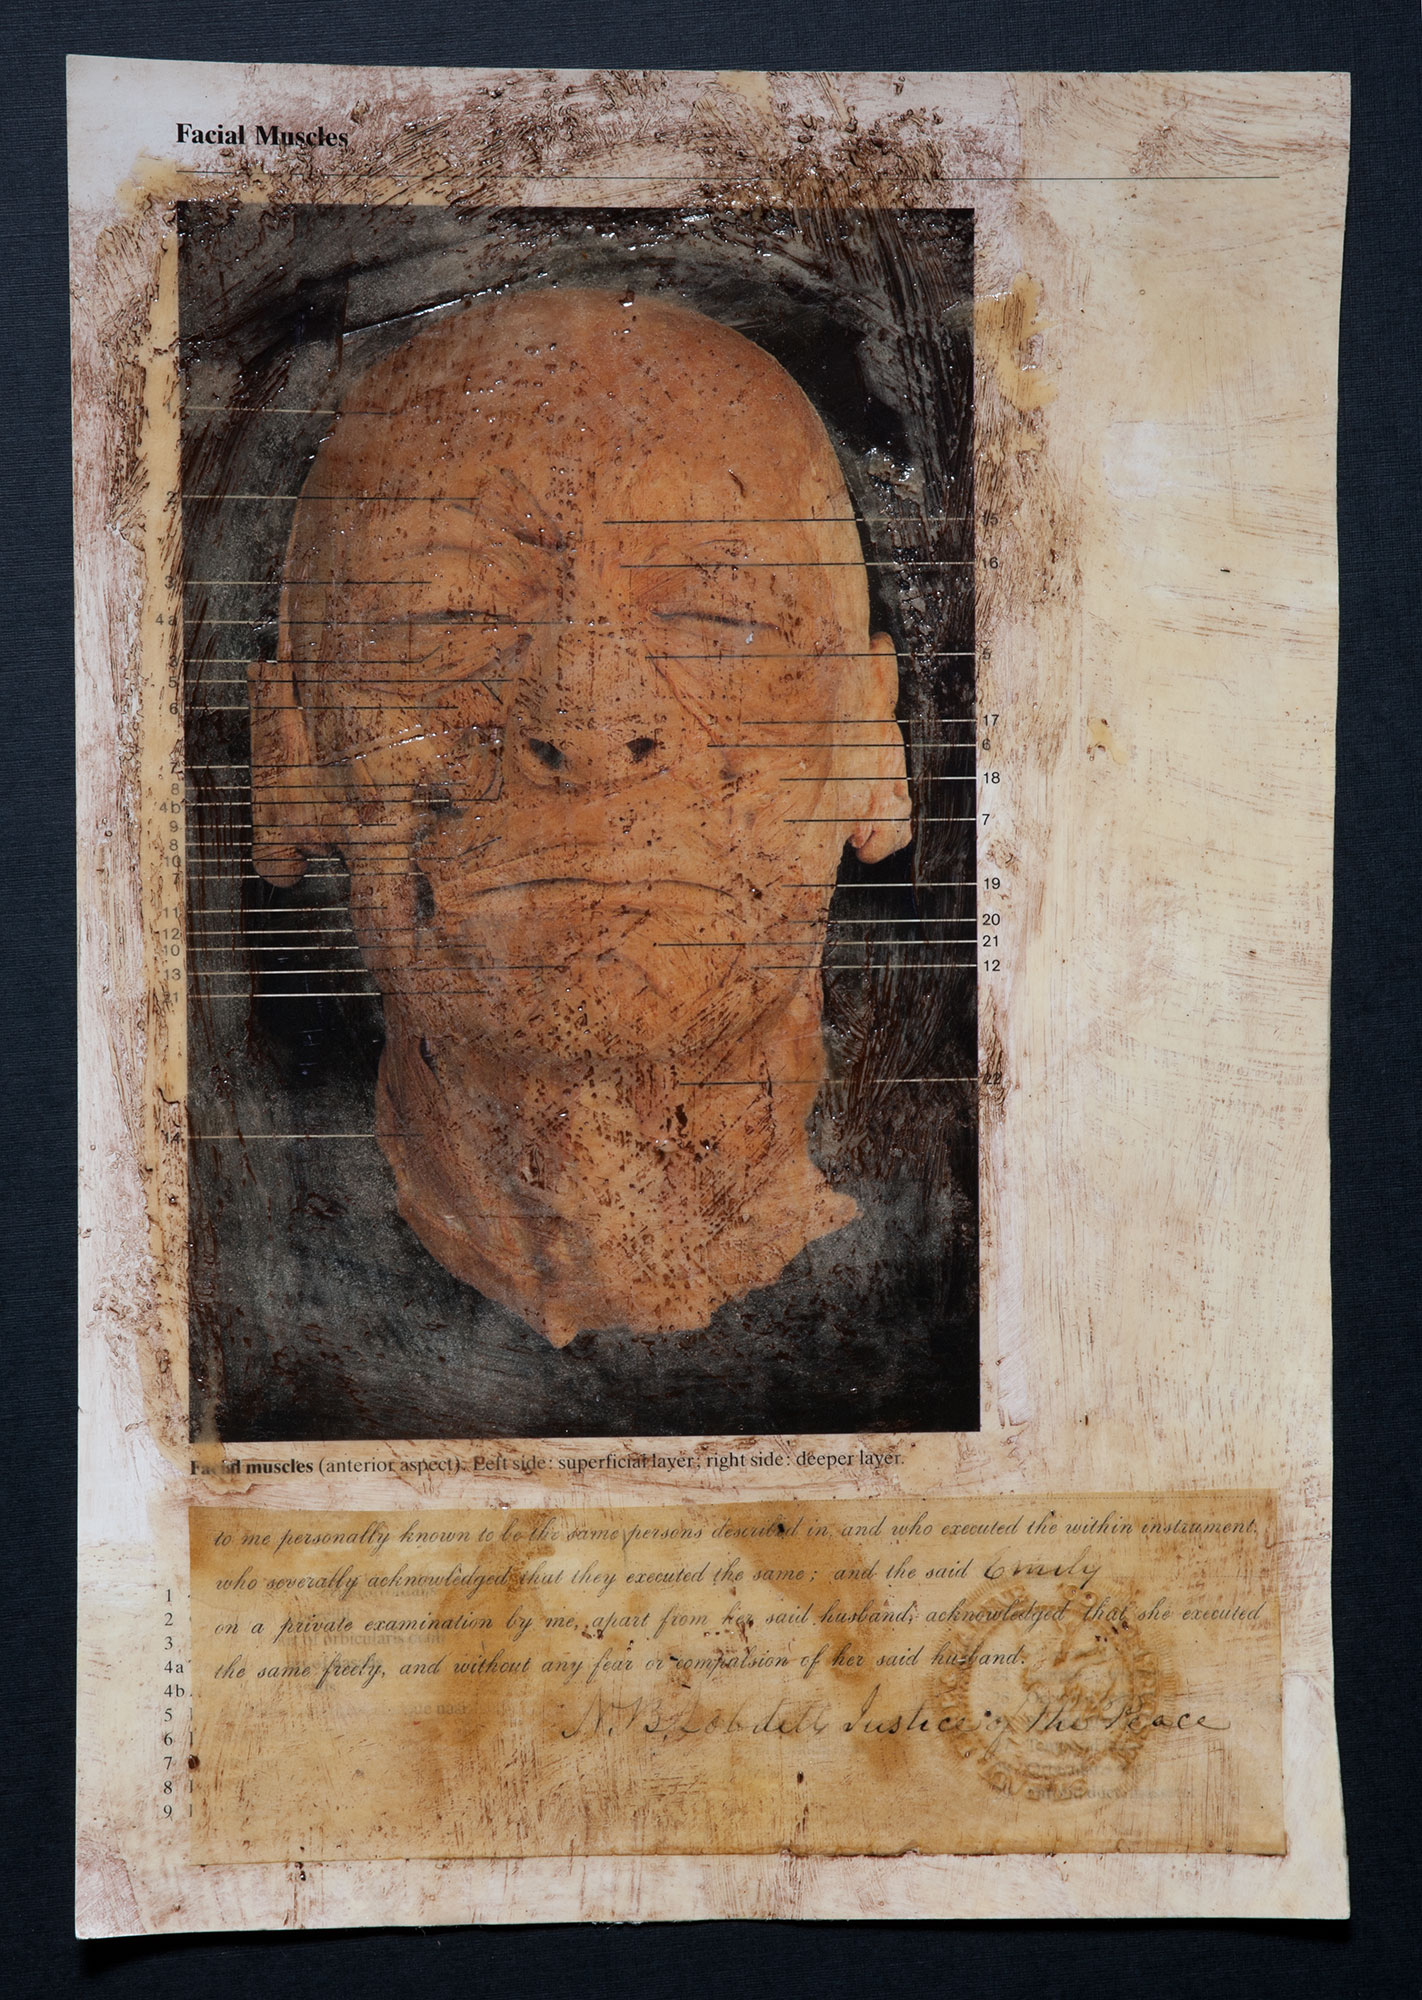 Facial Muscles
2
15
16
3
4a
5
5
6
17
6
7
18
8
4b
7
9
8
10
19
11
20
12
21
10
12
13
11
22
14
Facial muscles (anterior aspect). Left side: superficial layer; right side: deeper layer.
to me personally known to be the same persons described in, and who executed the within instrument,
who severally acknowledged that they executed the same; and the said Emily
on a private examination by me, apart from her said husband, acknowledged that she executed
the same freely, and without any fear or compulsion of her said husband.
N.B. Lobdell Justice of the Peace
1
2
3
4a
4b
5
6
7
8
9